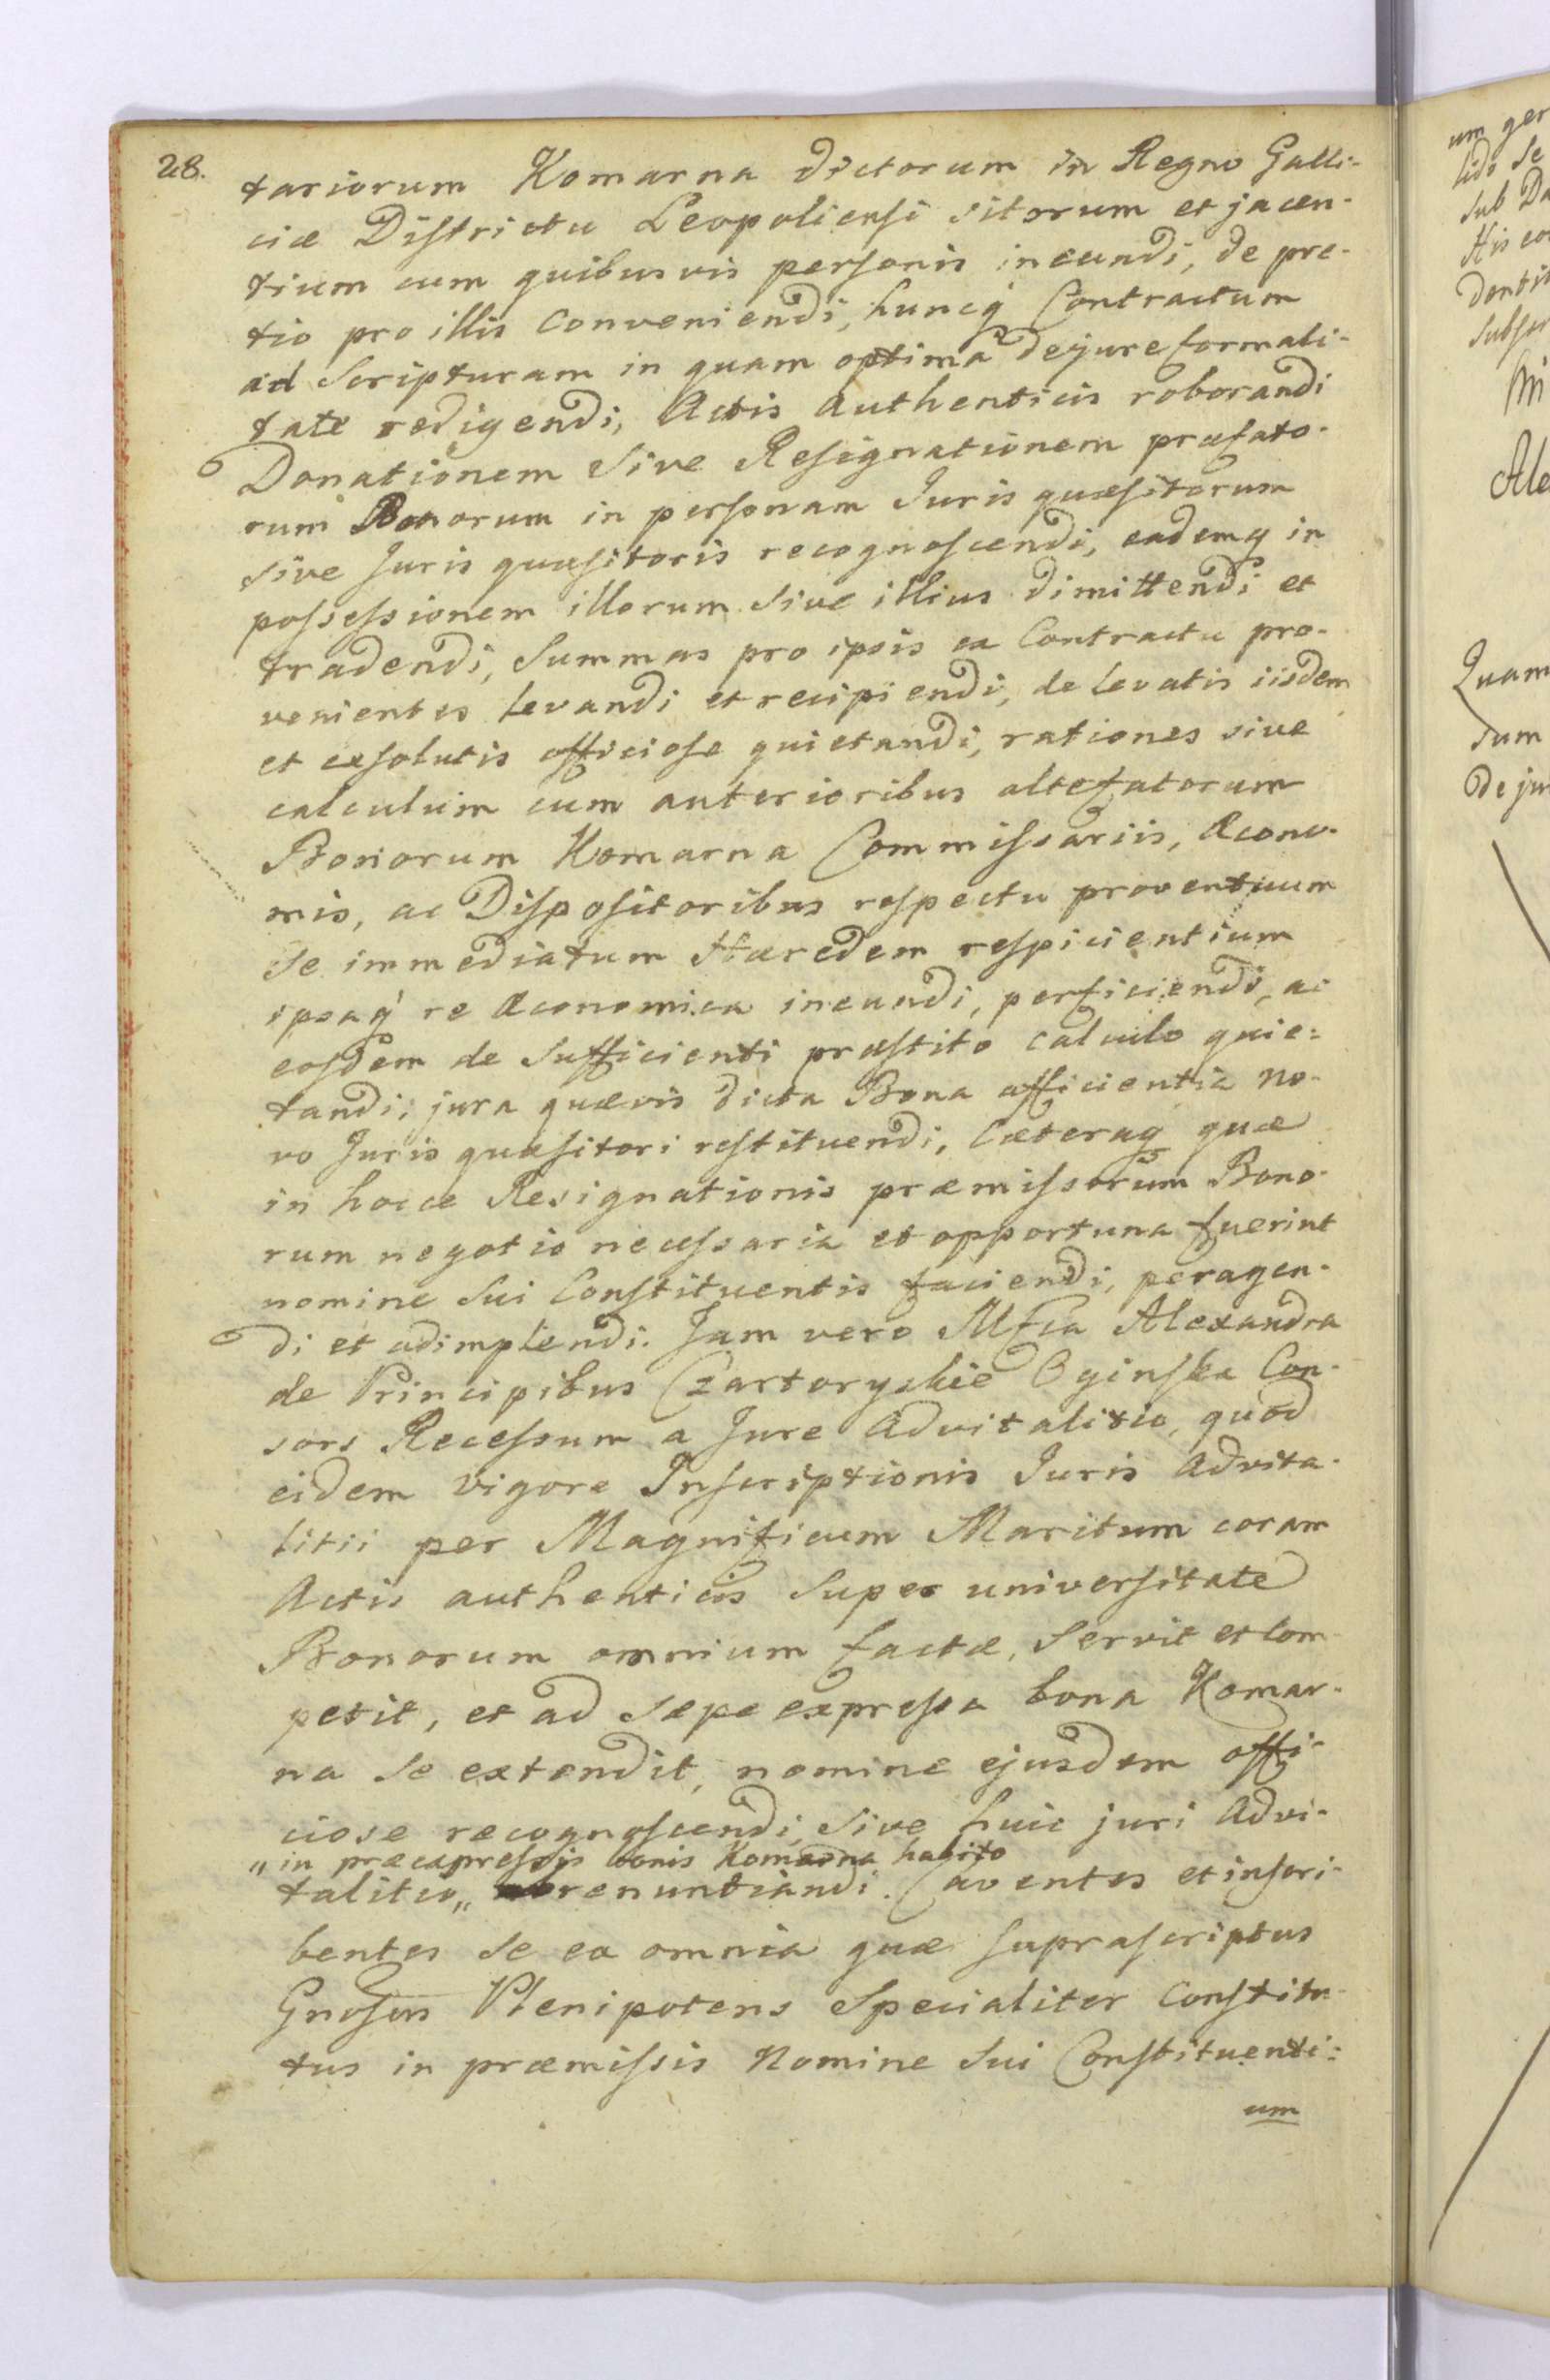 28.
tariorum Komarna dictorum in Regno Galli-
ciæ Districtu Leopoliensi sitorum et jacen-
tium cum quibusvis personis ineundi, de pre-
tio pro illis conveniendi, huncq́ Contractum
ad Scripturam in quam optima de jure formali-
tate redigendi, Actis Authenticis roborandi
Donationem Sive Resignationem præfato-
rum Bonorum in personam Juris quæsitorum
sive Juris quæsitoris recognoscendi, eademq́ in
possessionem illorum Sive illius dimittendi et
tradendi, Summas pro ipsis ex Contractu pro-
venientes levandi et recipiendi, de levatis iisdem
et exsolutis officiose quietandi, rationes sive
calculum cum anterioribus altefatorum
Bonorum Komarna Commissariis, Œcono-
mis, ac Dispositoribus respectu proventuum
Se immediatum Hæredem respicientium
ipsaq́ re Œconomica ineundi, perficiendi, ac
eosdem de Sufficienti præstito calculo quie-
tandi, jura quævis dicta Bona afficientia no-
vo Juris quæsitori restituendi, Cæteraq́ quæ
in hocce Resignationis præmissorum Bono-
rum negotio necessaria et opportuna fuerint
nomine Sui Constituentis faciendi, peragen-
di et adimplendi. Jam vero Mfca Alexandra
de Principibus Czartoryskie Oginska Con-
sors Recessum a Jure Advitalitio, quod
eidem vigore Inscriptionis Juris Advita-
litii per Magnificum Maritum coram
Actis authenticis Super universitate
Bonorum omnium factæ, Servit et Com-
petit, et ad Sæpe expressa bona Komar-
na Se extendit, nomine ejusdem offi-
ciose recognoscendi, Sive huic juri Advi-
„ in præexpressis bonis Komarna habito
talitio „ renuntiandi. Caventes et inscri-
bentes Se ea omnia quæ Suprascriptus
Gnosus Plenipotens Specialiter Constitu-
tus in præmissis Nomine Sui Constituenti-
um
um ger
lido Se
Sub Da
His co
Subscr
Ale
Quam
dum
De jur